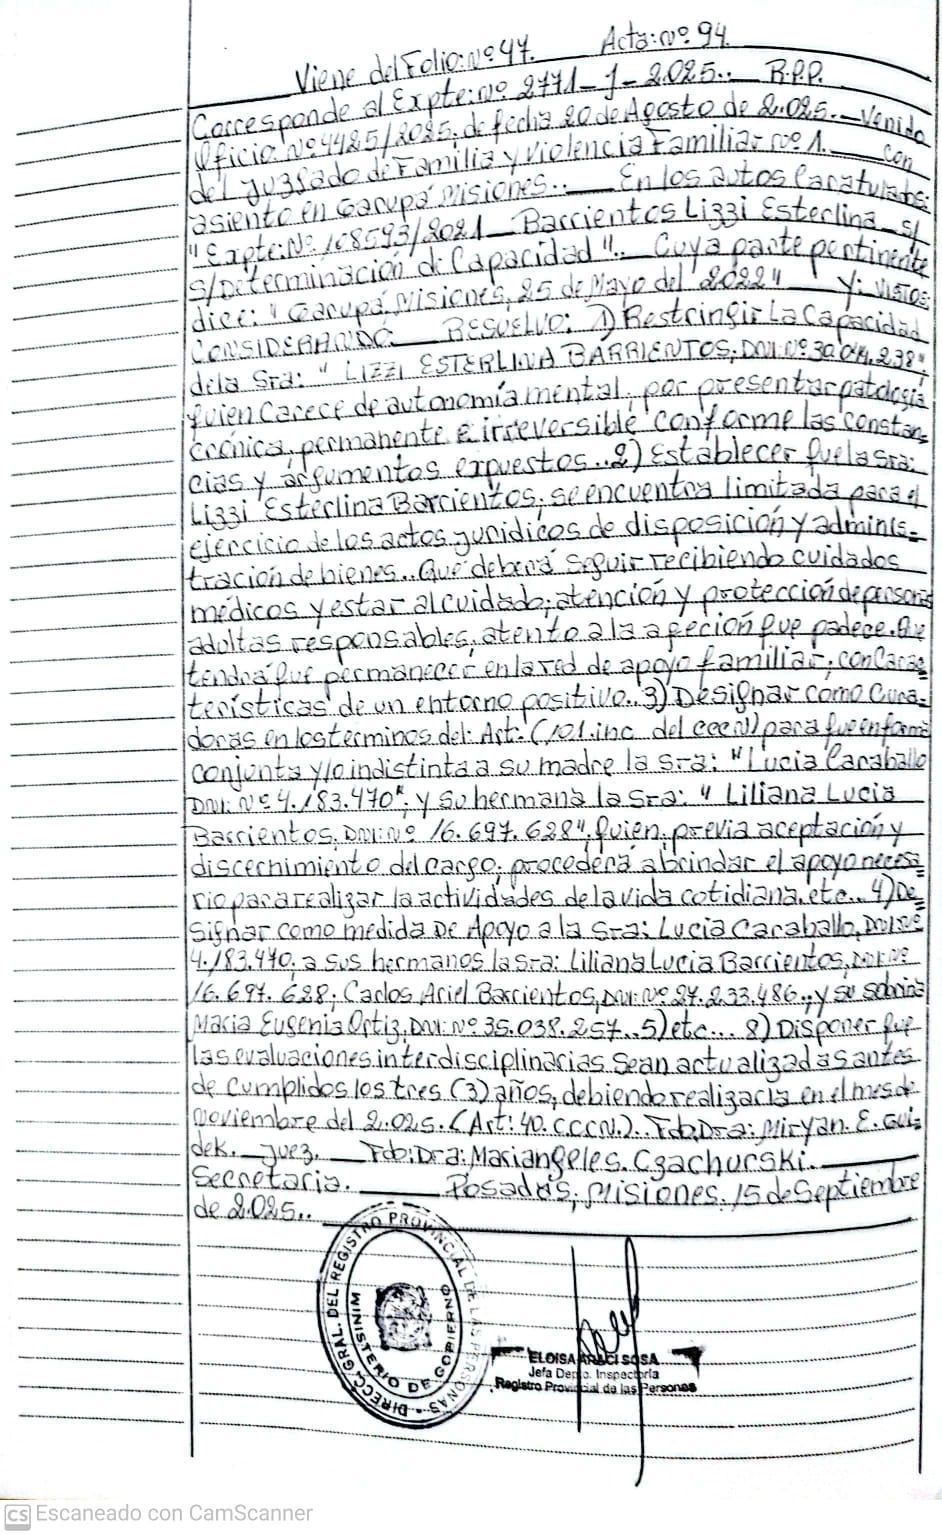 Viene del Folio: Nº 47. Acta: Nº 94.
Corresponde al Expte: Nº 2771-J-2.025.. R.P.P.
Oficio: Nº 4425/2025. de fecha 20 de Agosto de 2.025.- Venido
del Juzgado de Familia y Violencia Familiar Nº 1. con
asiento en Garupá Misiones.. En los autos Caratulabs:
"Expte: Nº. 108593/2021 Barrientos Lizzi Esterlina s/
s/Determinación de Capacidad".. Cuya parte pertinente
dice: "Garupá, Misiones, 25 de Mayo del 2022" Y: VISTOS:
CONSIDERANDO: RESUELVO: 1) Restringir La Capacidad
de la Sra: "LIZZI ESTERLINA BARRIENTOS, DNI: Nº 30.044.238"
quien Carece de autonomía mental, por presentar patología
crónica, permanente e irreversible conforme las constan-
cias y argumentos expuestos.. 2) Establecer que la Sra:
Lizzi Esterlina Barrientos, se encuentra limitada para el
ejercicio de los actos jurídicos de disposición y adminis=
tración de bienes.. Que deberá seguir recibiendo cuidados
médicos y estar al cuidado, atención y protección de personas
adultas responsables, atento a la afeción que padece. Que
tendrá que permanecer en la red de apoyo familiar, con Carac=
terísticas de un entorno positivo.. 3) Designar como Cura-
doras en los terminos del: Art: (101. inc. del CCCN) para que en forma
conjunta y/o indistinta a su madre la Sra: "Lucia Caraballo
DNI: Nº 4.183.470", y su hermana la Sra: "Liliana Lucia
Barrientos, DNI: Nº 16.697.628", quien, previa aceptación y
discernimiento del cargo, procederá a brindar el apoyo necesa
rio para realizar la actividades de la vida cotidiana, etc... 4) De=
signar como medida De Apoyo a la Sra: Lucia Caraballo, DNI: Nº
4.183.470, a sus hermanos la Sra: Liliana Lucia Barrientos, DNI: Nº
16.697.628, Carlos Ariel Barrientos, DNI: Nº 27.233.486., y su sobrina
Maria Eugenia Ortiz, DNI: Nº 35.038.257.. 5) etc... 8) Disponer que
las evaluaciones interdisciplinarias Sean actualizadas antes
de Cumplidos los tres (3) años, debiendo realizarla en el mes de
Noviembre del 2.025. (Art: 40. CCCN.).. Fdo. Dra: Miryan. E. Gui-
dek. Juez. Fdo: Dra: Mariangeles. Czachurski.
Secretaria. Posadas, Misiones, 15 de Septiembre
de 2.025..
DIRECC. GRAL. DEL REGISTRO PROVINCIAL DE LAS PERSONAS
MINISTERIO DE GOBIERNO
ELOISA ARACI SOSA
Jefa Depto. Inspectoría
Registro Provincial de las Personas
CS Escaneado con CamScanner